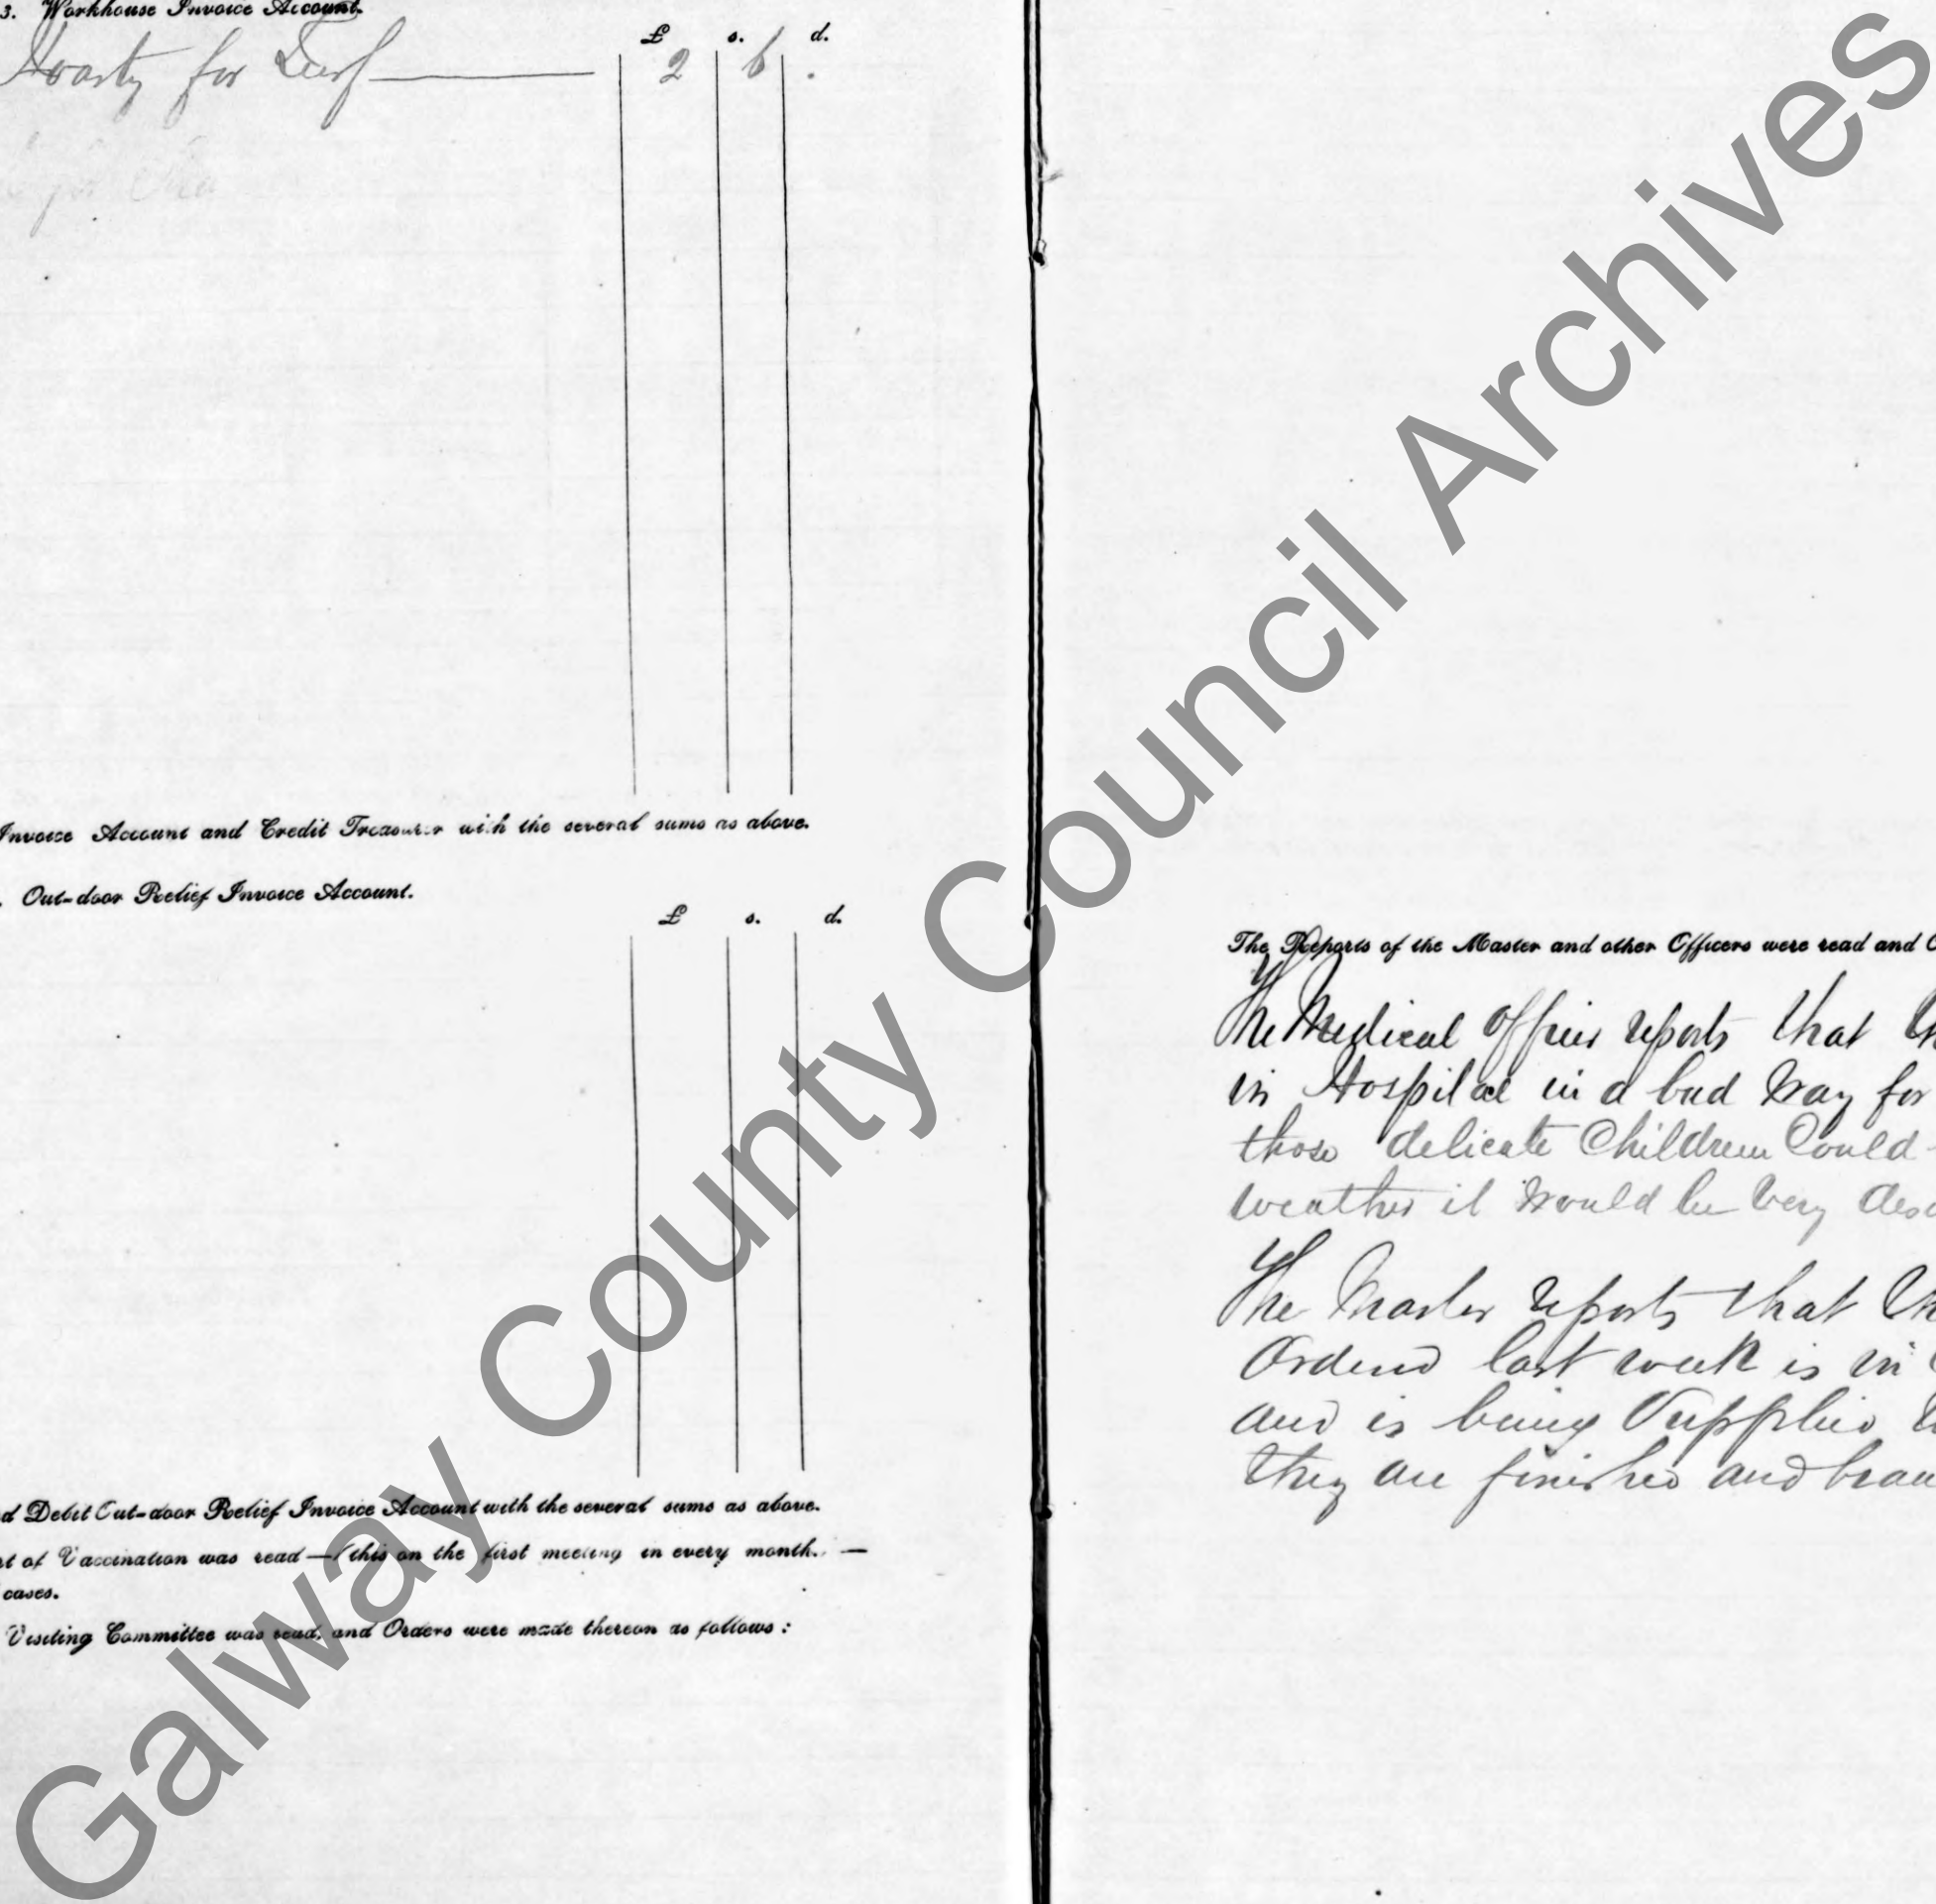 3. Workhouse Invoice Account.
£ s. d.
for Turf 2 6 .
for
Invoice Account and Credit Treasurer with the several sums as above.
Out-door Relief Invoice Account.
£ s. d.
d Debit Out-door Relief Invoice Account with the several sums as above.
rt of Vaccination was read — (this on the first meeting in every month. —
cases.
Visiting Committee was read, and Orders were made thereon as follows :
The Reports of the Master and other Officers were read and O
The Medical Officer reports that th
in Hospital in a bad way for
those delicate Children Could
weather it would be very des
The Master reports that th
Ordered last week is in
and is being Supplied
they are finished and
Galway County Council Archives